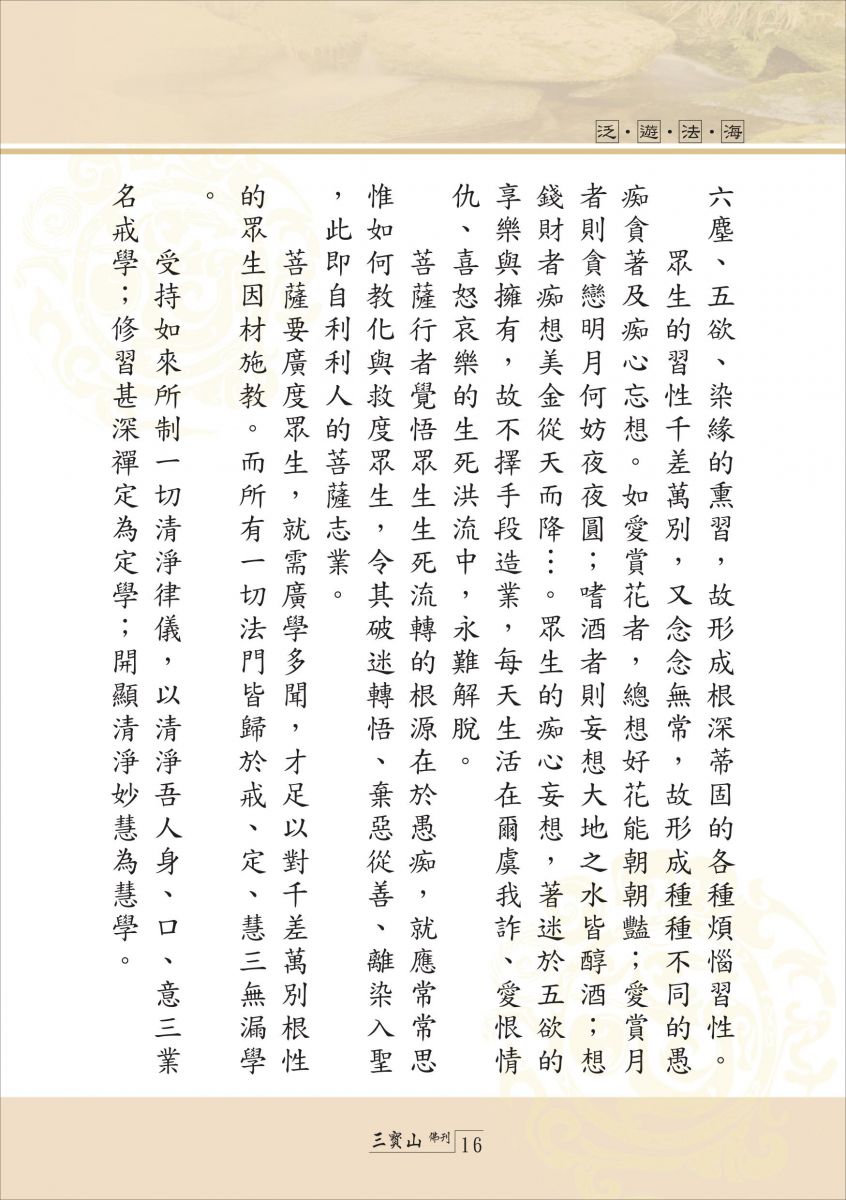 泛・遊・法・海
六塵、五欲、染緣的熏習，故形成根深蒂固的各種煩惱習性。
眾生的習性千差萬別，又念念無常，故形成種種不同的愚
痴貪著及痴心忘想。如愛賞花者，總想好花能朝朝豔；愛賞月
者則貪戀明月何妨夜夜圓；嗜酒者則妄想大地之水皆醇酒；想
錢財者痴想美金從天而降…。眾生的痴心妄想，著迷於五欲的
享樂與擁有，故不擇手段造業，每天生活在爾虞我詐、愛恨情
仇、喜怒哀樂的生死洪流中，永難解脫。
菩薩行者覺悟眾生生死流轉的根源在於愚痴，就應常常思
惟如何教化與救度眾生，令其破迷轉悟、棄惡從善、離染入聖
，此即自利利人的菩薩志業。
菩薩要廣度眾生，就需廣學多聞，才足以對千差萬別根性
的眾生因材施教。而所有一切法門皆歸於戒、定、慧三無漏學
。
受持如來所制一切清淨律儀，以清淨吾人身、口、意三業
名戒學；修習甚深禪定為定學；開顯清淨妙慧為慧學。
三寶山 佛刊 16